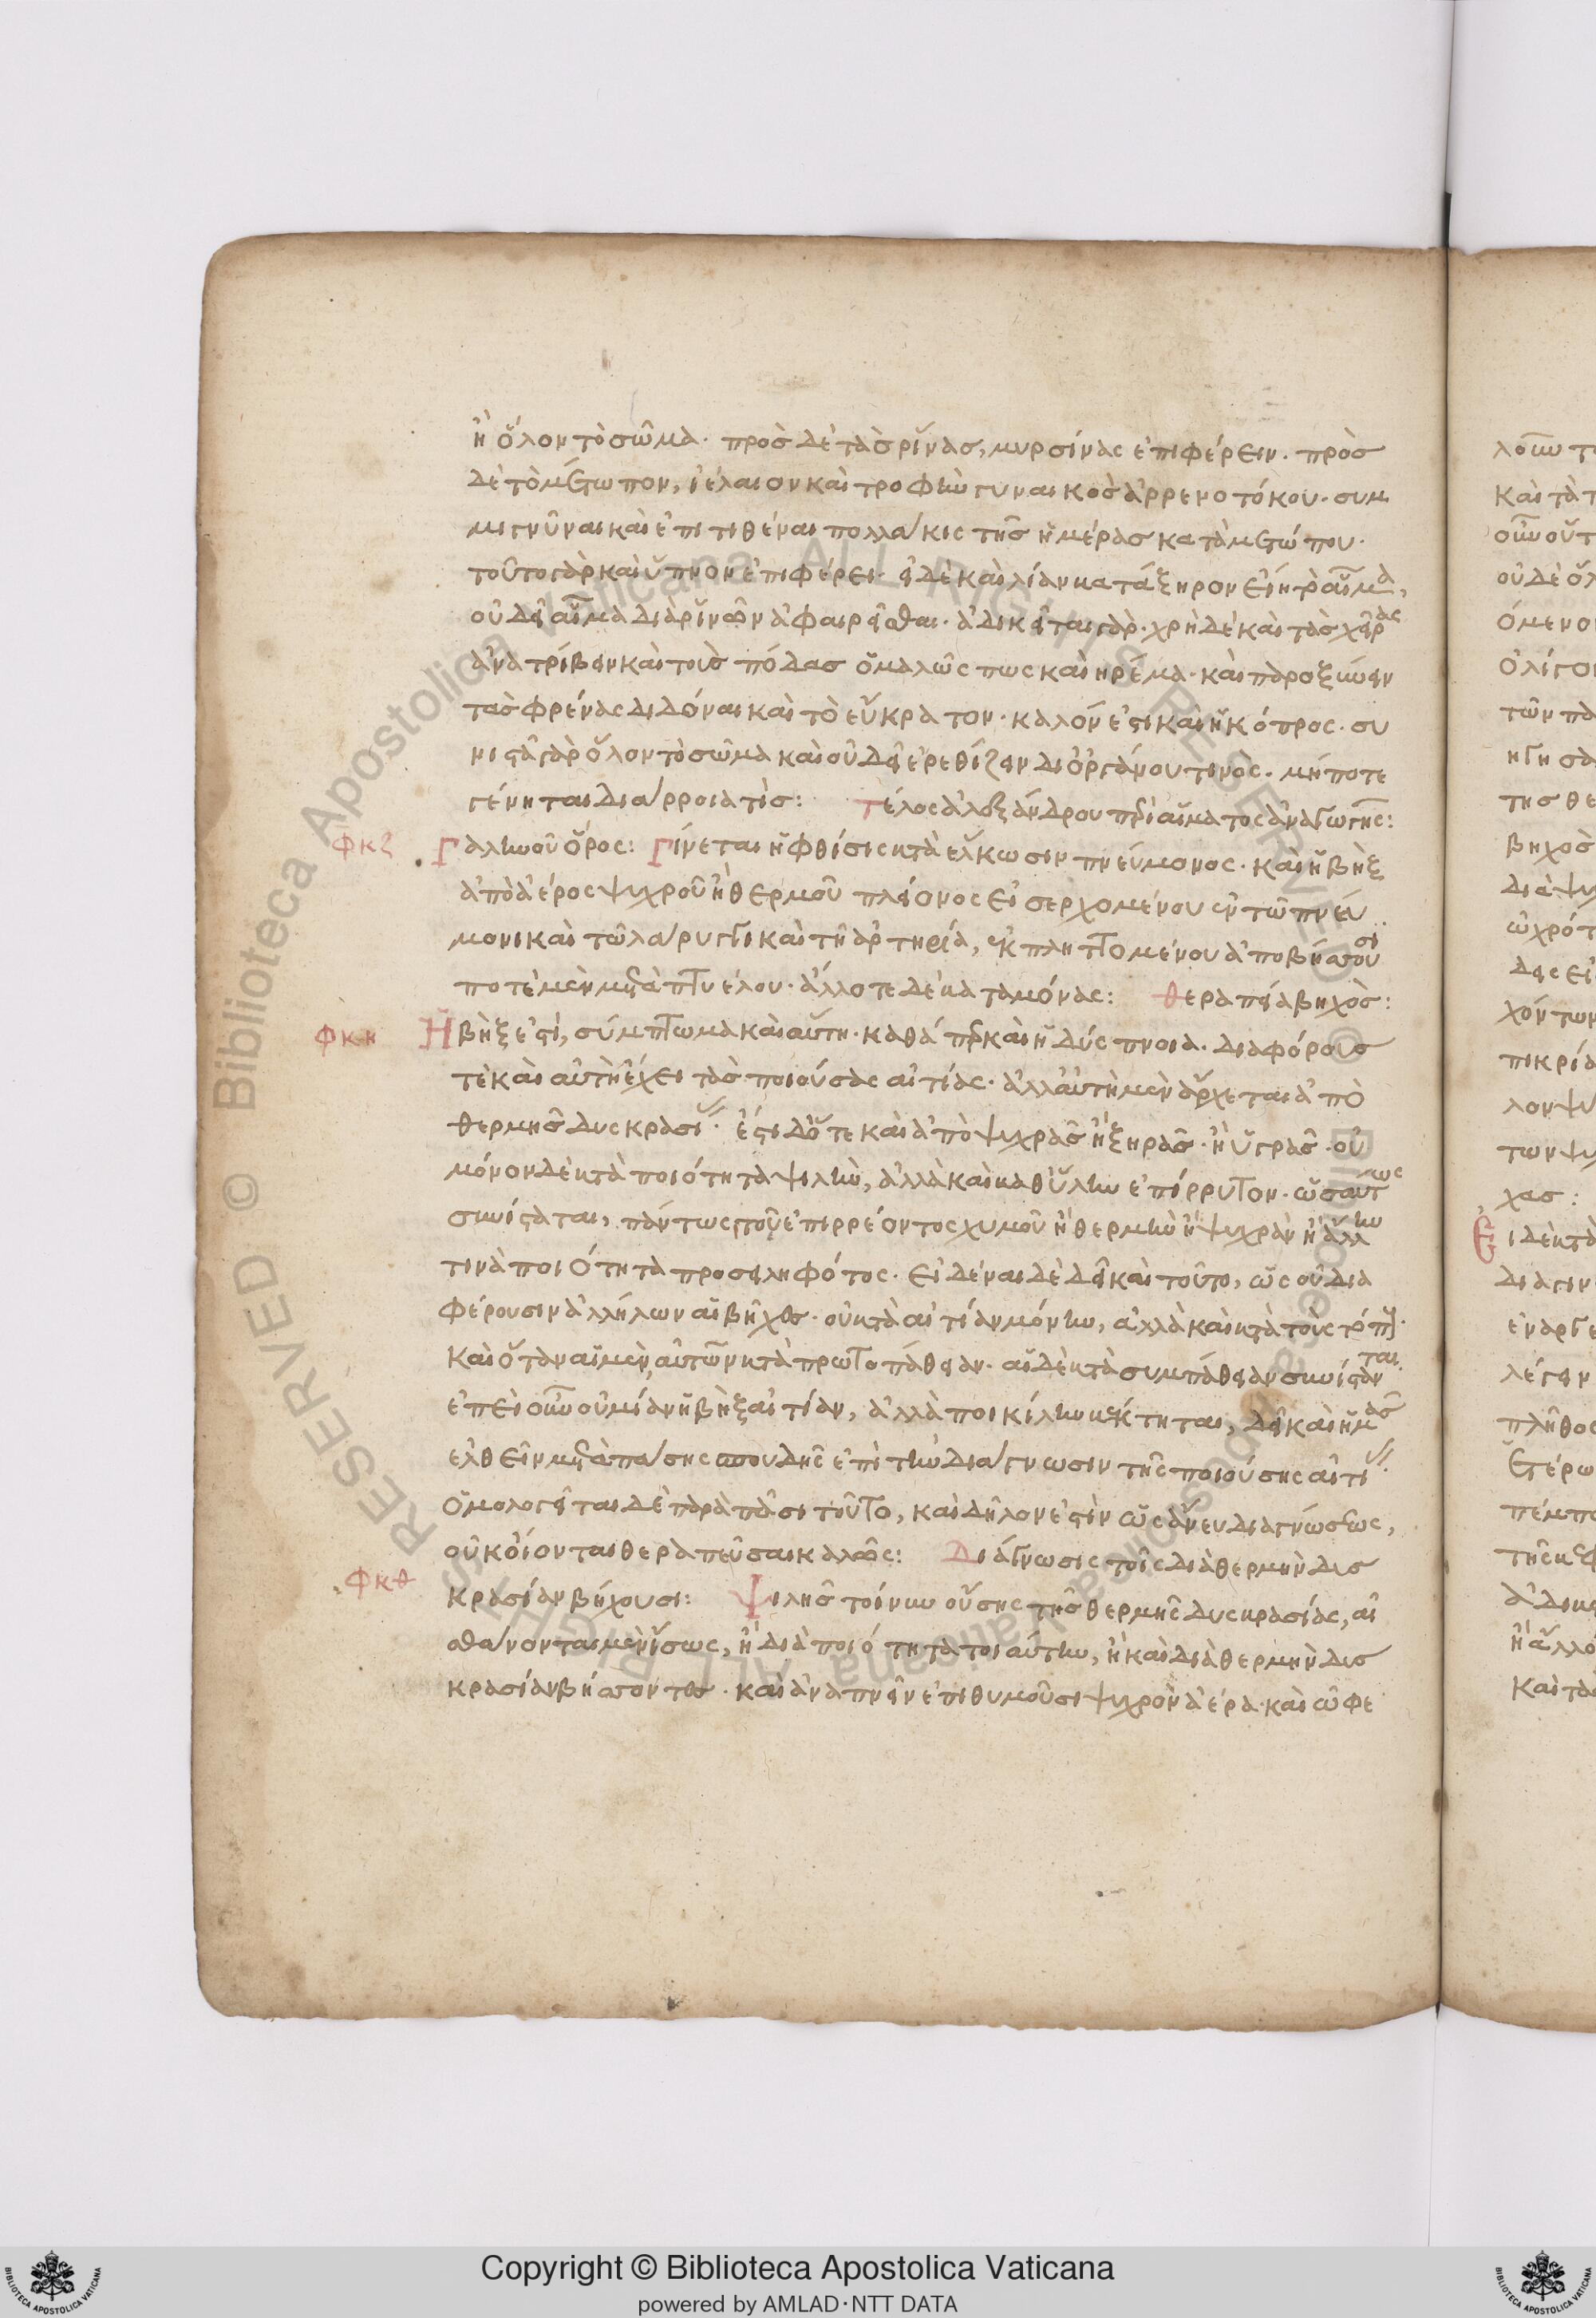 ἢ ὅλον τὸ σῶμα· πρὸς δὲ τὰς ῥῖνας, μυρσίνας ἐπιφέρειν· πρὸς
δὲ τὸ μέτωπον, ἰέλαιον καὶ τροφὴν γυναικὸς ἀρρενοτόκου· συμ
μιγνῦναι καὶ ἐπιτιθέναι πολλάκις τῆς ἡμέρας κατὰ μετώπου·
τοῦτο γὰρ καὶ ὕπνον ἐπιφέρει· εἰ δὲ καὶ λίαν κατάξηρον εἴη τραῦμα,
οὐ δεῖ αἷμα διὰ ῥινῶν ἀφαιρεῖσθαι· ἀδικεῖται γάρ· χρὴ δὲ καὶ τὰς χεῖρας
ἀνατρίβειν καὶ τοὺς πόδας ὁμαλῶς πως καὶ ἠρέμα· καὶ παροξύνειν
τὰς φρένας διδόναι καὶ τὸ εὔκρατον· καλόν ἐστι καὶ ἡ κόπρος· συ
νιστᾷ γὰρ ὅλον τὸ σῶμα καὶ οὐ δεῖ ἐρεθίζειν δι' ὀργάνου τινὸς· μήποτε
γένηται διάρροιά τις: Τέλος ἀλεξάνδρου περὶ αἵματος ἀναγωγῆς:
φκζ Γαληνοῦ ὅρος: Γίνεται ἡ φθίσις κατὰ ἕλκωσιν πνεύμονος· καὶ ἡ βὴξ
ἀπὸ ἀέρος ψυχροῦ ἢ θερμοῦ πλείονος εἰσερχομένου ἐν τῶ πνεύ
μονι καὶ τῶ λάρυγγι καὶ τῆ ἀρτηρία, ἐκπληττομένου ἀποβήσσουσι
ποτὲ μὲν μετὰ πτυέλου· ἄλλοτε δὲ κατα μόνας: θεραπεία βηχὸς:
φκη Ἡ βὴξ ἐστί, σύμπτωμα καὶ αὕτη· καθάπερ καὶ ἡ δύσπνοια· διαφόρους
τὲ καὶ αὐτὴ ἔχει τὰς ποιούσας αἰτίας· ἀλλ' αὐτὴ μὲν ἄρχεται ἀπὸ
θερμῆς δυσκρασίας· ἔστι δ' ὅτε καὶ ἀπὸ ψυχρᾶς ἢ ξηρᾶς· ἢ ὑγρᾶς· οὐ
μόνον δὲ κατὰ ποιότητα ψιλὴν, ἀλλὰ καὶ καθ' ὕλην ἐπίρρυτον· ὡσαύτως
συνίσταται, πάντως τοῦ ἐπιρρέοντος χυμοῦ ἢ θερμὴν ἢ ψυχρὰν ἢ ἄλλην
τινὰ ποιότητα προσειληφότος· εἰδέναι δὲ δεῖ καὶ τοῦτο, ὡς οὐ δια
φέρουσιν ἀλλήλων αἱ βῆχες· οὐ κατὰ αἰτίαν μόνην, ἀλλὰ καὶ κατὰ τοὺς τόπους·
καὶ ὅταν αἱ μὲν, αὐτῶν κατὰ πρωτοπάθειαν· αἱ δὲ κατὰ συμπάθειαν συνίστανται.
ἐπεὶ οὖν οὐ μίαν ἡ βὴξ αἰτίαν, ἀλλὰ ποικίλην κέκτηται, δεῖ καὶ ἡμᾶς
ἐλθεῖν μετὰ πάσης σπουδῆς ἐπὶ τὴν διάγνωσιν τῆς ποιούσης αἰτίας·
ὁμολογεῖται δὲ παρὰ πᾶσι τοῦτο, καὶ δῆλον ἐστὶν ὡς ἄνευ διαγνώσεως,
οὐκ οἴονται θεραπεῦσαι καλῶς: Διάγνωσις τοῖς διὰ θερμὴν δυσ
φκθ κρασίαν βήχουσι: Ψιλῆς τοίνυν οὔσης τῆς θερμῆς δυσκρασίας, αἰ
σθάνονται μὲν ἴσως, ἢ διὰ ποιότητα τοιαύτην, ἢ καὶ διὰ θερμὴν δυσ
κρασίαν βήσσοντες· καὶ ἀναπνεῖν ἐπιθυμοῦσι ψυχρὸν ἀέρα· καὶ ὠφε
Copyright © Biblioteca Apostolica Vaticana
powered by AMLAD·NTT DATA